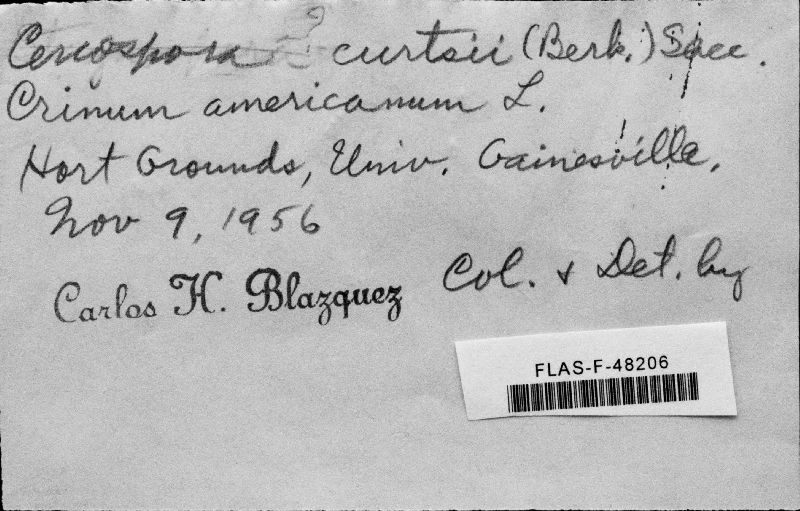 Cercospora ? curtsii (Berk.) Sacc.
Crinum americanum L.
Hort Grounds, Univ. Gainesville.
Nov 9, 1956
Carlos H. Blazquez Col. & Det. by
FLAS-F-48206